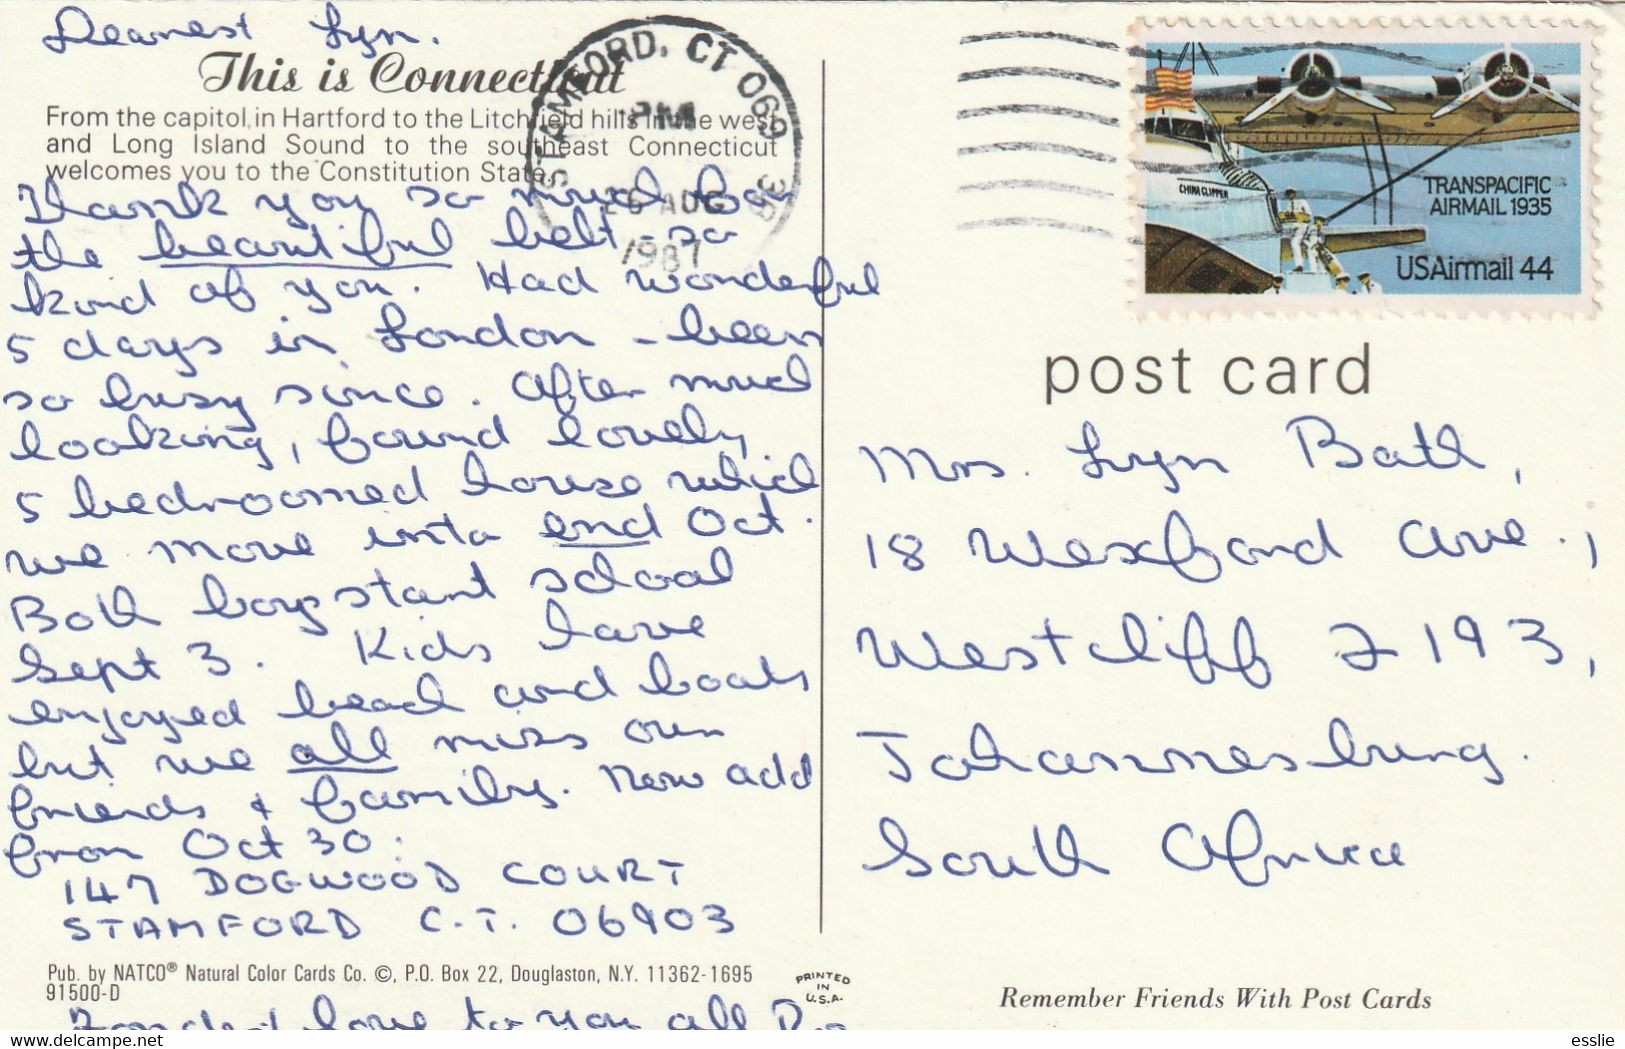 Dearest Lyn.
This is Connecticut
From the capitol in Hartford to the Litchfield hills in the west
and Long Island Sound to the southeast Connecticut
welcomes you to the Constitution State.
Thank you so much for
the beautiful belt - so
kind of you. Had wonderful
5 days in London - been
so busy since. After much
looking, found lovely
5 bedroomed house which
we move into end Oct.
Both boys start school
Sept 3. Kids have
enjoyed beach and boats
but we all miss our
friends + family. New add
from Oct 30:
147 DOGWOOD COURT
STAMFORD C.T. 06903
Pub. by NATCO® Natural Color Cards Co. ©, P.O. Box 22, Douglaston, N.Y. 11362-1695
91500-D
PRINTED
IN
U.S.A.
Fondest love to you all
STAMFORD, CT 069
PM
26 AUG
1987
CHINA CLIPPER
TRANSPACIFIC
AIRMAIL 1935
USAirmail 44
post card
Mrs. Lyn Bath,
18 Wexford Ave.,
Westcliff 2193,
Johannesburg.
South Africa
Remember Friends With Post Cards
www.delcampe.net
esslie